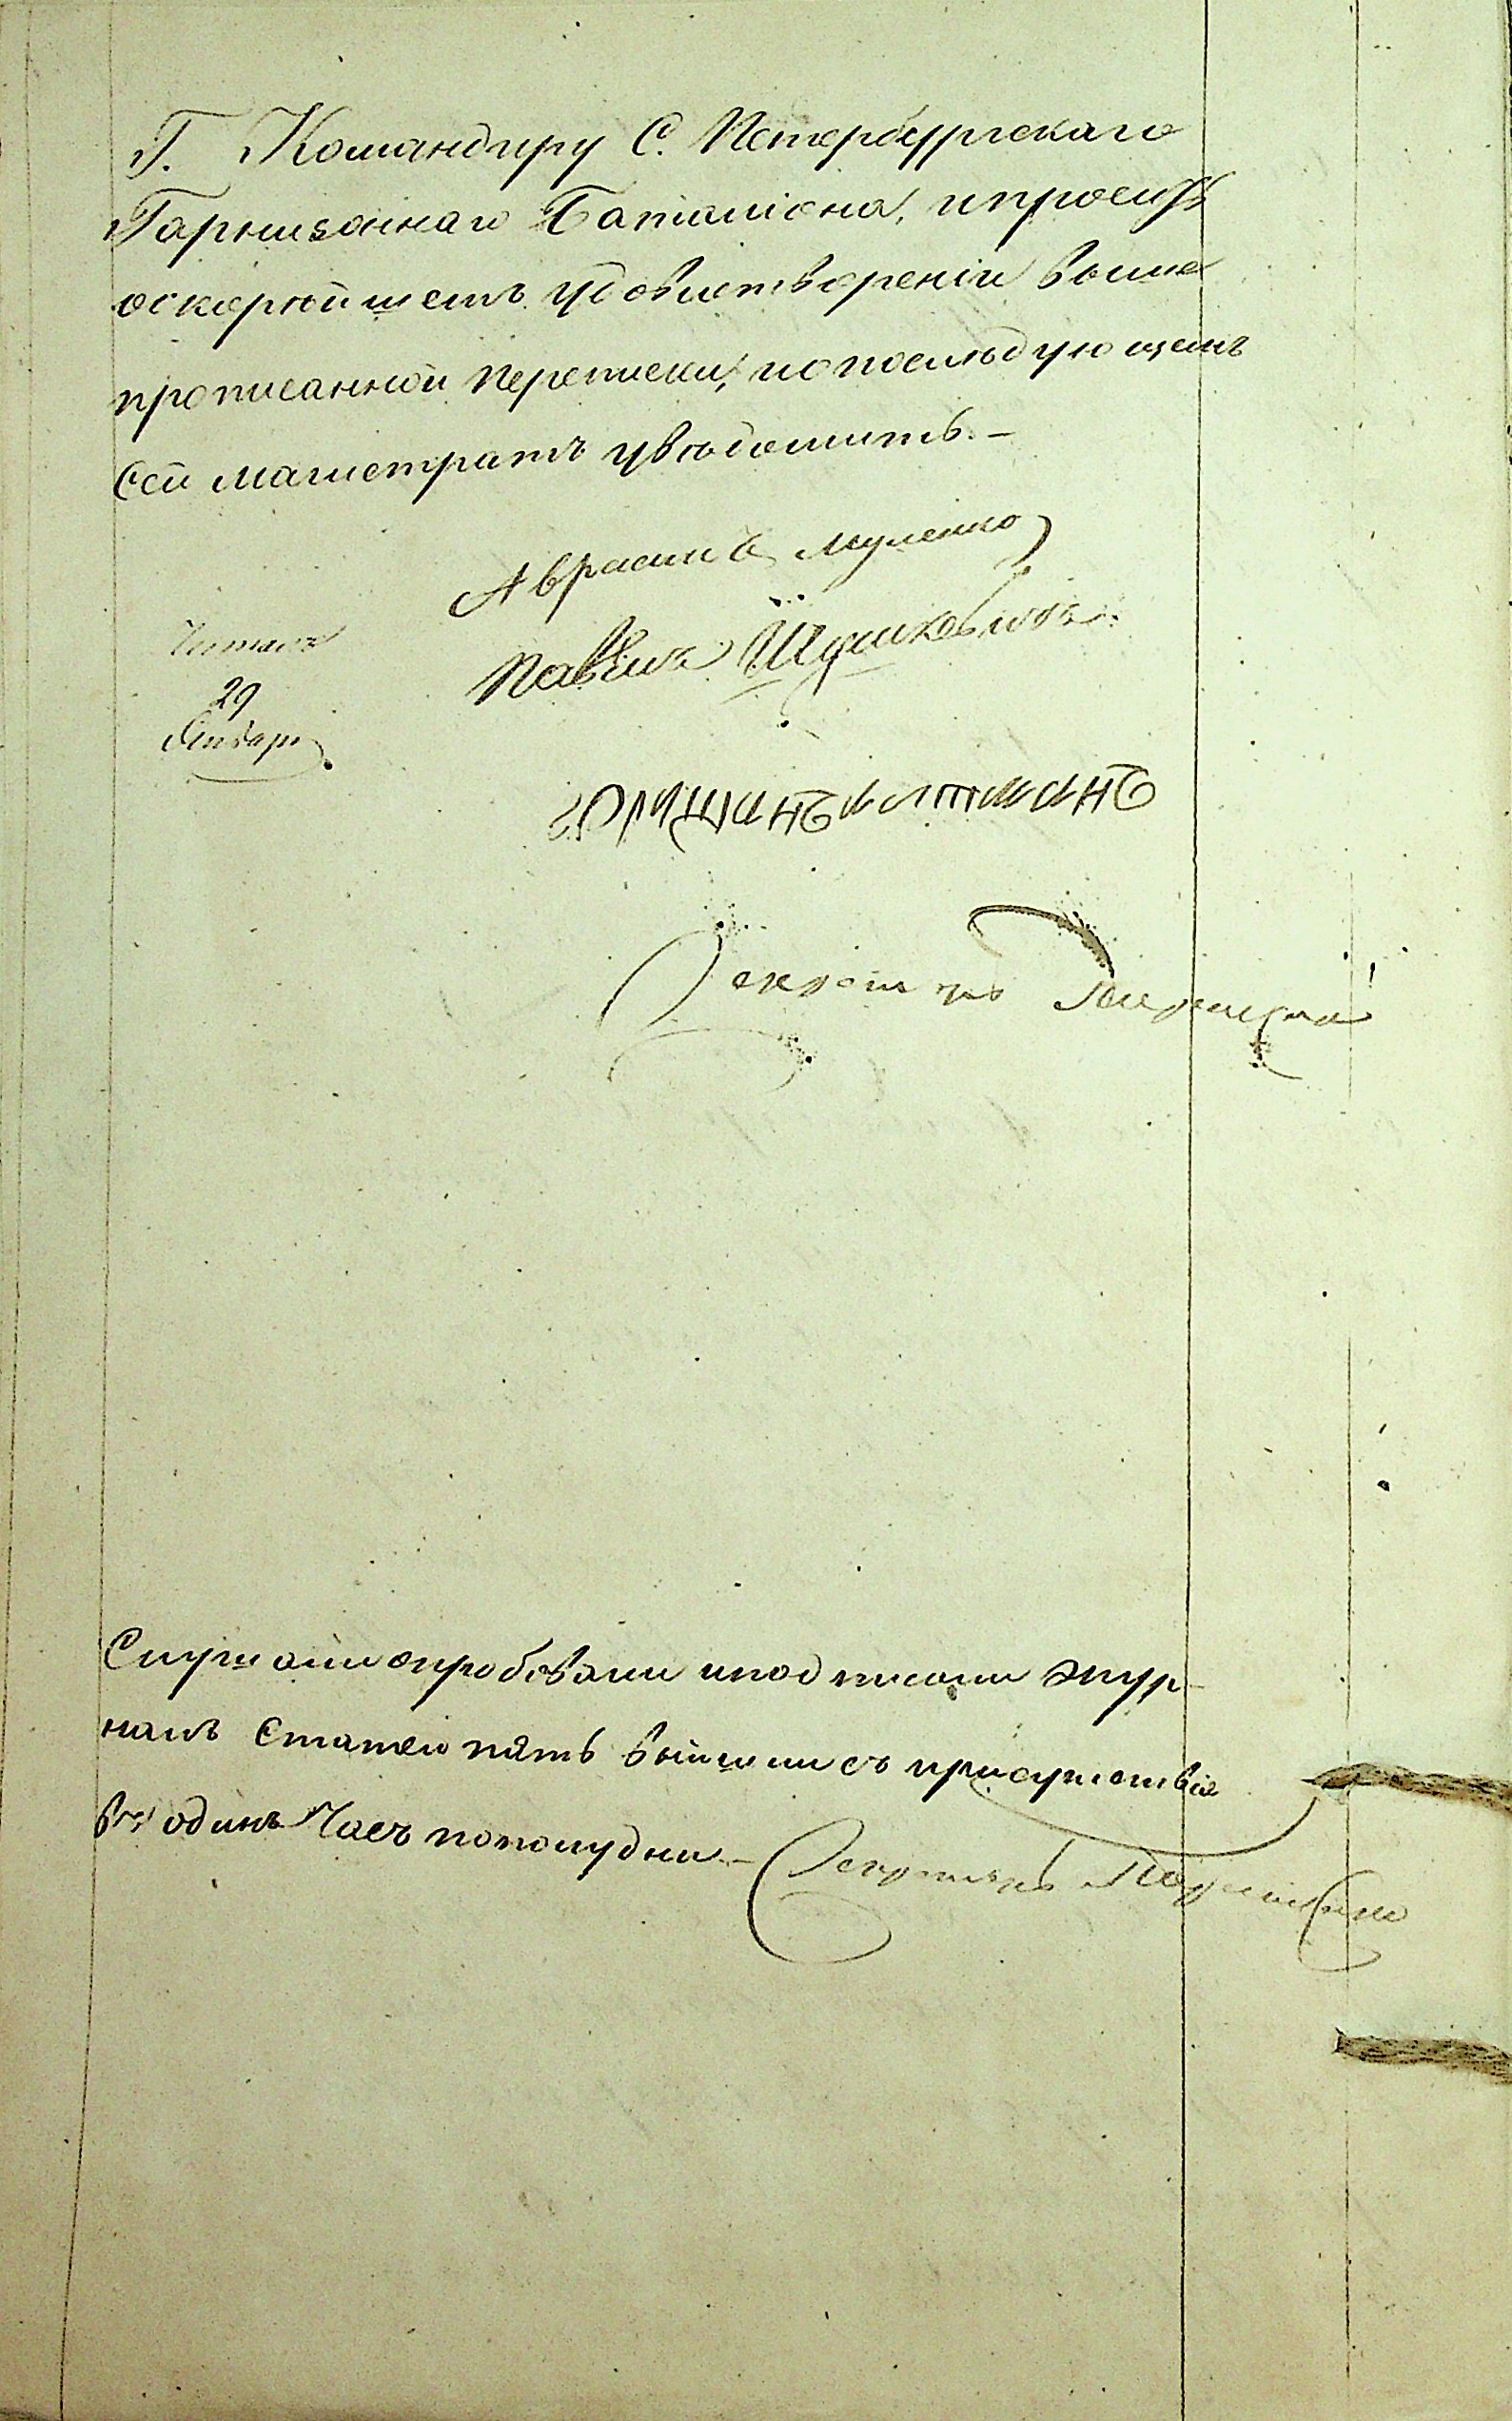 Г. Командиру С. Петербургскаго
Гарнизоннаго Баталіона, ипросить
оскорѣйшемъ удовлетвореніи выше
прописанной переписки, ипопослѣдующемъ
Сей магистратъ увѣдомить. —
Аврамъ
Павелъ
Читалъ
29
Января
Секретарь
Слушали опробовали иподписали жур-
налъ Статей пять вышли съ присутствія
въ одинъ Часъ пополудни. — Секретарь